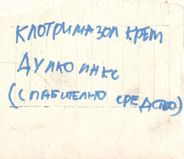 КЛОТРИМАЗОЛ КРЕМ
ДУЛКО ЛАКС
(СЛАБИТЕЛЬНО СРЕДСТВО)